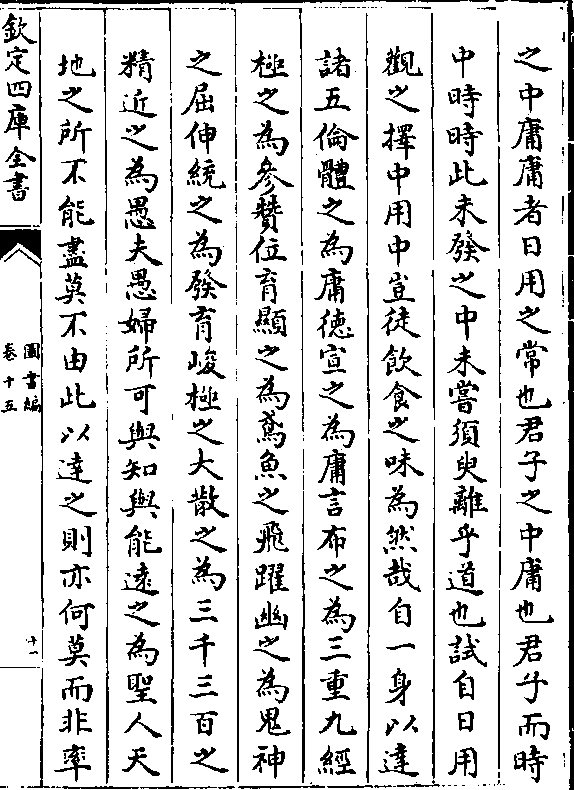 之中庸庸者日用之常也君子之中庸也君子而時
中時時此未發之中未嘗須臾離乎道也試自日用
觀之擇中用中豈徒飲食之味為然哉自一身以達
諸五倫體之為庸德宣之為庸言布之為三重九經
極之為參贊位育顯之為鳶魚之飛躍幽之為鬼神
之屈伸統之為發育峻極之大散之為三千三百之
精近之為愚夫愚婦所可與知與能遠之為聖人天
地之所不能盡莫不由此以達之則亦何莫而非率
欽定四庫全書
圖書編
卷十五
十一